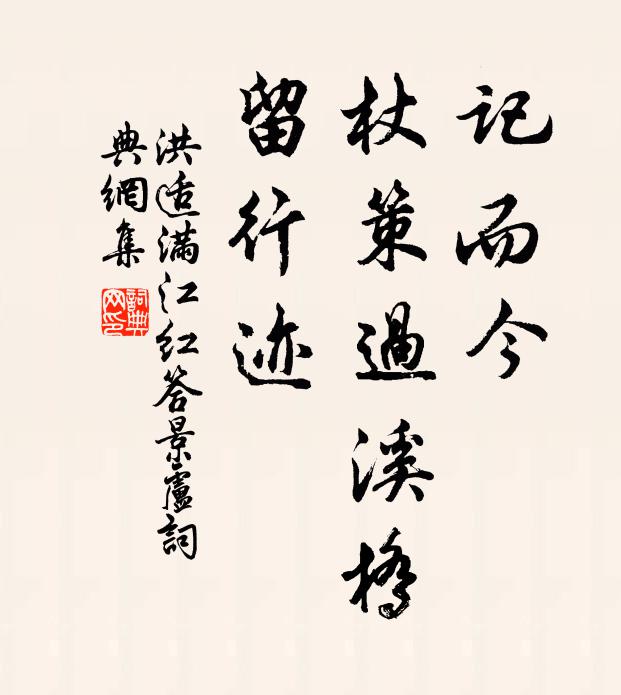 記而今
杖策過溪橋
留行迹
洪适滿江紅答景廬詞
典網集
詞典
网印